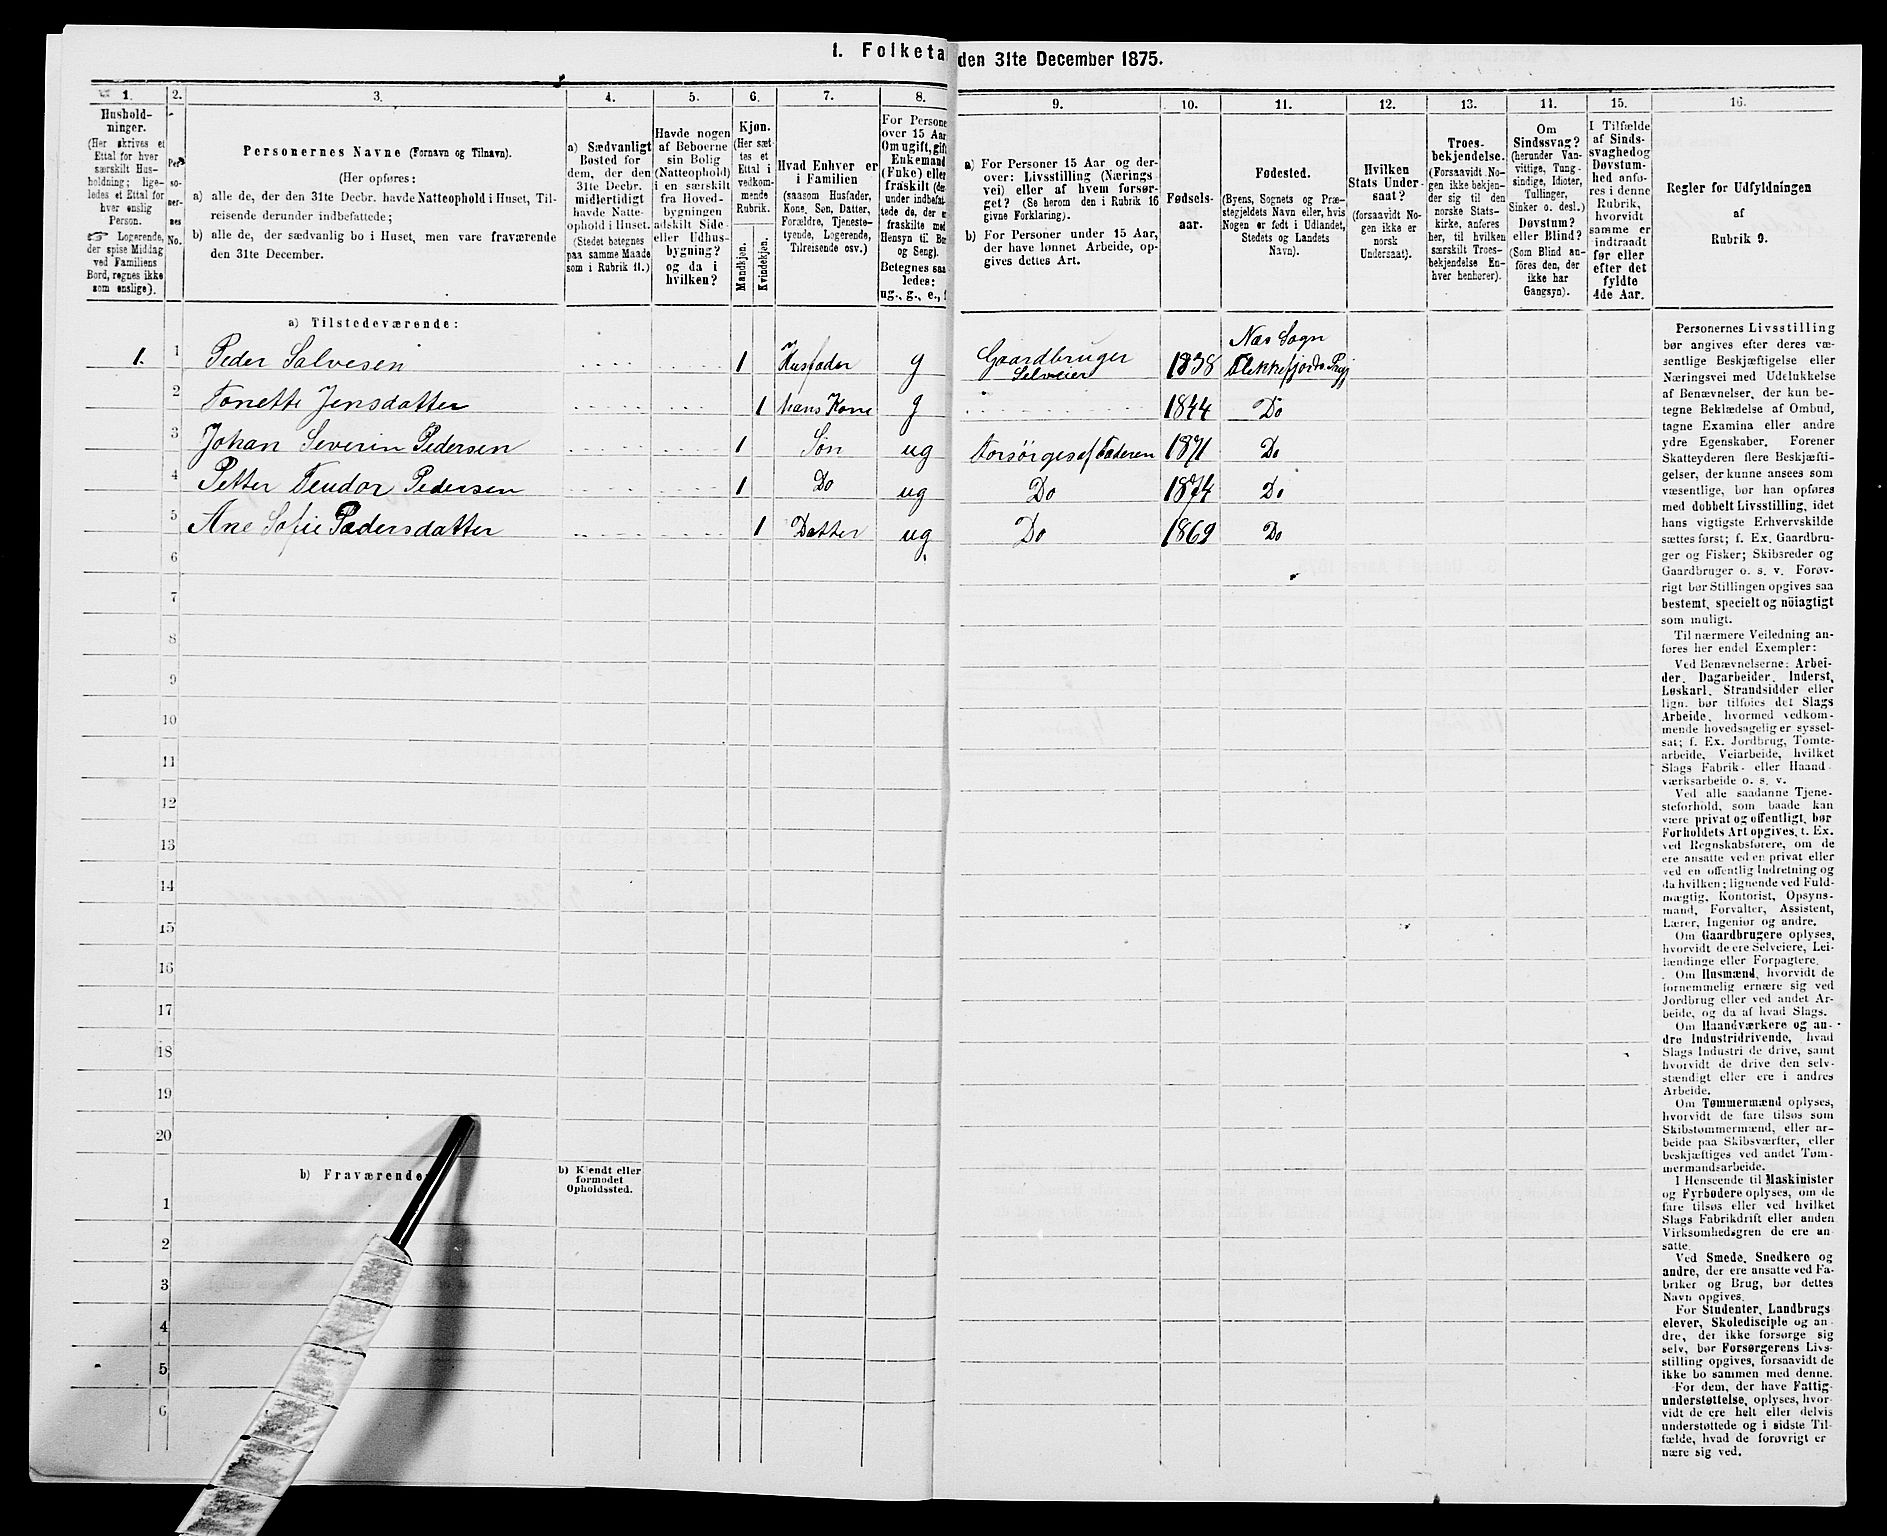 1. Folketa
den 31te December 1875.
1. 2. 3. 4. 5. 6. 7. 8. 9. 10. 11. 12. 13. 14. 15. 16.
Hushold-
ninger.
(Her skrives et
Ettal for hver
særskilt Hus-
holdning; lige-
ledes et Ettal for
hver enslig
Person.
☞ Logerende,
der spise Middag
ved Familiens
Bord, regnes ikke
som enslige).
Per
so-
ner-
nes
No.
Personernes Navne (Fornavn og Tilnavn).
(Her opføres:
a) alle de, der den 31te Decbr. havde Natteophold i Huset, Til-
reisende derunder indbefattede;
b) alle de, der sædvanlig bo i Huset, men vare fraværende
den 31te December.
a) Sædvanligt
Bosted for
dem, der den
31te Decbr.
midlertidigt
havde Natte-
ophold i Huset.
(Stedet betegnes
paa samme Maade
som i Rubrik 11.)
Havde nogen
af Beboerne
sin Bolig
(Natteophold)
i en særskilt
fra Hoved-
bygningen
adskilt Side-
eller Udhus-
bygning?
og da i
hvilken?
Kjøn.
(Her sæt-
tes et
Ettal i
vedkom-
mende
Rubrik.
Mandkjøn.
Kvindekjøn.
Hvad Enhver er
i Familien
(saasom Husfader,
Kone, Søn, Datter,
Forældre, Tjeneste-
tyende, Logerende,
Tilreisende osv.)
For Persone
over 15 Aar
Om ugift, gift
Enkemand
(Enke) eller
fraskilt (de
under indbefat
tede de, der e
fraskilte med
Hensyn til Bo
og Seng).
Betegnes saa
ledes:
ug., g., e., f
a) For Personer 15 Aar og der-
over: Livsstilling (Nærings
vei) eller af hvem forsør-
get? (Se herom den i Rubrik 16
givne Forklaring).
b) For Personer under 15 Aar,
der have lønnet Arbeide, op-
gives dettes Art.
Fødsels-
aar.
Fødested.
(Byens, Sognets og Præ-
stegjeldets Navn eller, hvis
Nogen er født i Udlandet,
Stedets og Landets
Navn).
Hvilken
Stats Under-
saat?
(forsaavidt No-
gen ikke er
norsk
Undersaat).
Troes-
bekjendelse.
(Forsaavidt No-
gen ikke bekjen-
der sig til den
norske Stats-
kirke, anføres
her, til hvilken
særskilt Troes-
bekjendelse En-
hver henhører).
Om
Sindssvag?
(herunder Van-
vittige, Tung-
sindige, Idioter,
Tullinger,
Sinker o. desl.)
Døvstum?
eller Blind?
(Som Blind an-
føres den, der
ikke har
Gangsyn).
I Tilfælde
af Sinds-
svaghed og
Døvstum-
hed anfø-
res i denne
Rubrik,
hvorvidt
samme er
indtraadt
før eller
efter det
fyldte
4de Aar.
Regler for Udfyldningen
af
Rubrik 9.
a) Tilstedeværende:
1. 1 Peder Salvesen 1 Husfader g Gaardbruger Selveier 1838 Næs Sogn Flekkefjords Prgj
2 Tonette Jensdatter 1 hans Kone g 1844 Do
3 Johan Severin Pedersen 1 Søn ug Forsørges af Faderen 1871 Do
4 Petter Teudor Pedersen 1 Do ug Do 1874 Do
5 Ane Sofie Pedersdatter 1 Datter ug Do 1869 Do
6
7
8
9
10
11
12
13
14
15
16
17
18
19
20
b) Fraværende
b) Kjendt eller
formodet
Opholdssted.
1
2
3
4
5
6
Personernes Livsstilling
bør angives efter deres væ-
sentlige Beskjæftigelse eller
Næringsvei med Udelukkelse
af Benævnelser, der kun be-
tegne Beklædelse af Ombud,
tagne Examina eller andre
ydre Egenskaber. Forener
Skatteyderen flere Beskjæfti-
gelser, der kunne ansees som
væsentlige, bør han opføres
med dobbelt Livsstilling, idet
hans vigtigste Erhvervskilde
sættes først; f. Ex. Gaardbru-
ger og Fisker; Skibsreder og
Gaardbruger o. s. v. Forøv-
rigt bør Stillingen opgives saa
bestemt, specielt og nöiagtigt
som muligt.
Til nærmere Veiledning an-
føres her endel Exempler:
Ved Benævnelserne: Arbei-
der, Dagarbeider, Inderst,
Løskarl, Strandsidder eller
lign. bør tilføies det Slags
Arbeide, hvormed vedkom-
mende hovedsagelig er syssel-
sat; f. Ex. Jordbrug, Tomte-
arbeide, Veiarbeide, hvilket
Slags Fabrik- eller Haand-
værksarbeide o. s. v.
Ved alle saadanne Tjene-
steforhold, som baade kan
være privat og offentligt, bør
Forholdets Art opgives, t. Ex.
ved Regnskabsførere, om de
ere ansatte ved en privat eller
ved en offentlig Indretning og
da hvilken; lignende ved Fuld-
mægtig, Kontorist, Opsyns-
mand, Forvalter, Assistent,
Lærer, Ingeniør og andre.
Om Gaardbrugere oplyses,
hvorvidt de ere Selveiere, Lei-
lændinge eller Forpagtere.
Om Husmænd, hvorvidt de
fornemmelig ernære sig ved
Jordbrug eller ved andet Ar-
beide, og da af hvad Slags.
Om Haandværkere og an-
dre Industridrivende, hvad
Slags Industri de drive, samt
hvorvidt de drive den selv-
stændigt eller ere i andres
Arbeide.
Om Tømmermænd oplyses,
hvorvidt de fare tilsøs som
Skibstømmermænd, eller ar-
beide paa Skibsværfter, eller
beskjæftiges ved andet Tøm-
mermandsarbeide.
I Henseende til Maskinister
og Fyrbødere oplyses, om de
fare tilsøs eller ved hvilket
Slags Fabrikdrift eller anden
Virksomhedsgren de ere an-
satte.
Ved Smede, Snedkere og
andre, der ere ansatte ved Fa-
briker og Brug, bør dettes
Navn opgives.
For Studenter, Landbrugs
elever, Skoledisciple og an-
dre, der ikke forsørge sig
selv, bør Forsørgerens Livs-
stilling opgives, forsaavidt de
ikke bo sammen med denne.
For dem, der have Fattig-
understøttelse, oplyses, hvor-
vidt de ere helt eller delvis
understøttede og i sidste Til-
fælde, hvad de forøvrigt er
nære sig ved.